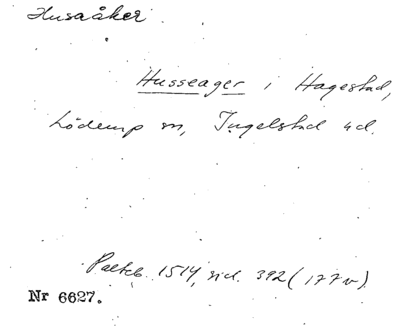 Husaåker
Husseager i Hagestad,
Löderup sn, Ingelstad hd.
Palteb. 1514, sid. 392 (177v).
Nr 6627.